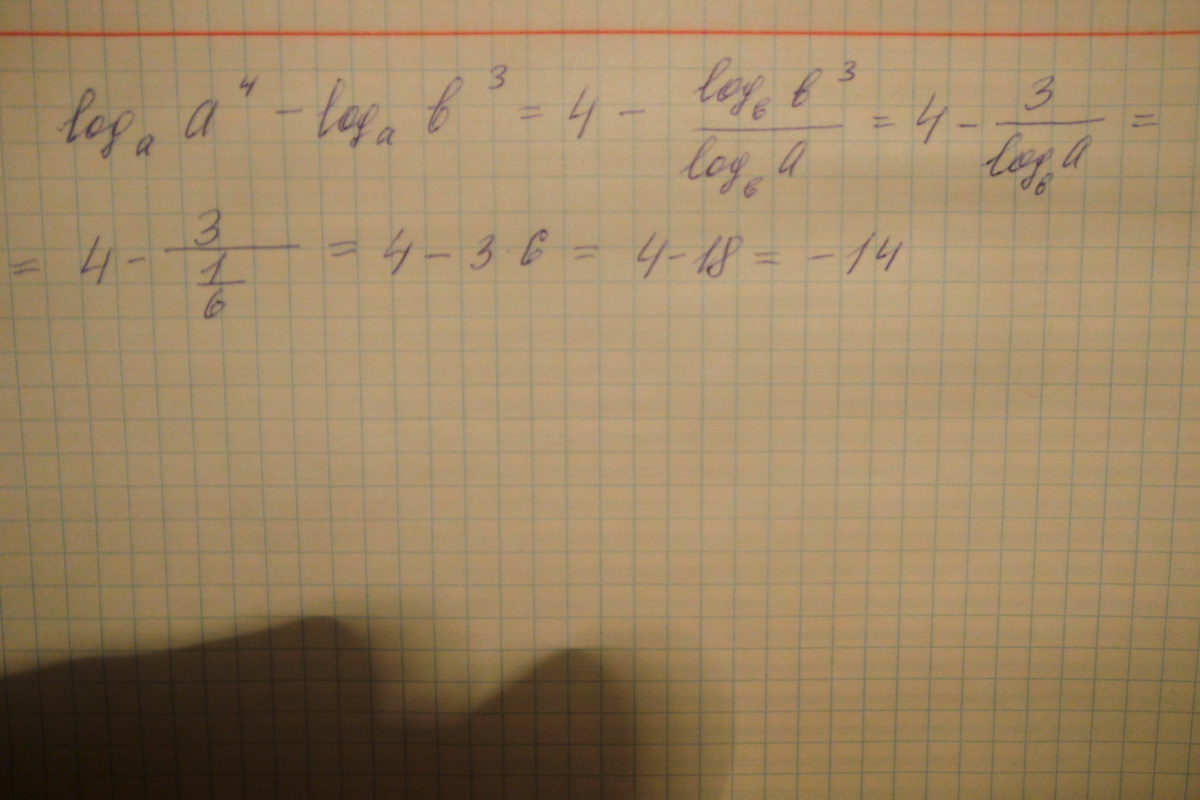 logₐ a⁴ − logₐ в³ = 4 − log_в в³ / log_в a = 4 − 3 / log_в a =
= 4 − 3 / (1/6) = 4 − 3 · 6 = 4 − 18 = −14